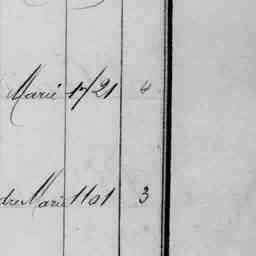 Marie 1721 4
dre Marie 1101 3